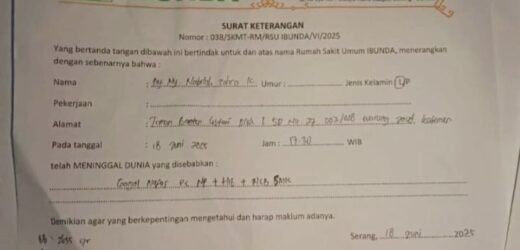 SURAT KETERANGAN
Nomor : 038/SKMT-RM/RSU IBUNDA/VI/2025
Yang bertanda tangan dibawah ini bertindak untuk dan atas nama Rumah Sakit Umum IBUNDA, menerangkan
dengan sebenarnya bahwa :
Nama : By. Ny. Umur : Jenis Kelamin L/P
Pekerjaan :
Alamat : Taman Banten Lestari Blok
Pada tanggal : 18 Juni 2025 Jam : 17.30 WIB
telah MENINGGAL DUNIA yang disebabkan :
Gagal Nafas
Demikian agar yang berkepentingan mengetahui dan harap maklum adanya.
Serang, 18 Juni 2025